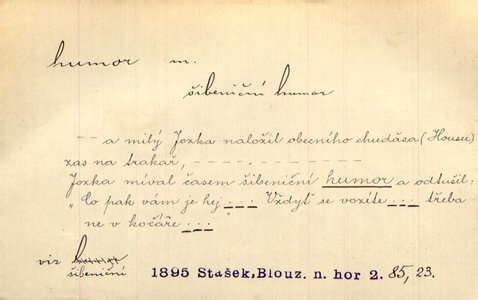 humor m.
šibeniční humor
– – a milý Jozka naložil obecního chuďása (Housu)
zas na trakař, – – – – . – – – – – – – –
Jozka míval časem šibeniční humor a odtušil:
"Co pak vám je hej ... Vždyť se vozíte ... třeba
ne v kočáře ... "
viz humor
šibeniční
1895 Stašek, Blouz. n. hor 2. 85, 23.